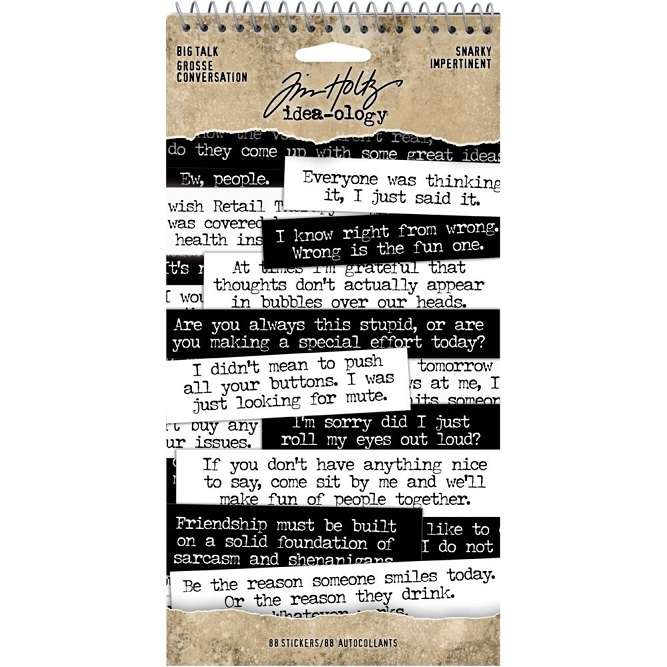 BIG TALK
GROSSE
CONVERSATION
SNARKY
IMPERTINENT
Tim Holtz
idea-ology
know the aren't real,
do they come up with some great ideas
Ew, people.
Everyone was thinking
it, I just said it.
wish Retail
was covered
health ins
I know right from wrong.
Wrong is the fun one.
It's
At times I'm grateful that
thoughts don't actually appear
in bubbles over our heads.
I wou
Are you always this stupid, or are
you making a special effort today?
I didn't mean to push
all your buttons. I was
just looking for mute.
tomorrow
at me, I
someon
buy any
ur issues.
I'm sorry did I just
roll my eyes out loud?
If you don't have anything nice
to say, come sit by me and we'll
make fun of people together.
Friendship must be built
on a solid foundation of
sarcasm and shenanigans
like to
I do not
Be the reason someone smiles today.
Or the reason they drink.
Whatever works.
88 STICKERS/88 AUTOCOLLANTS